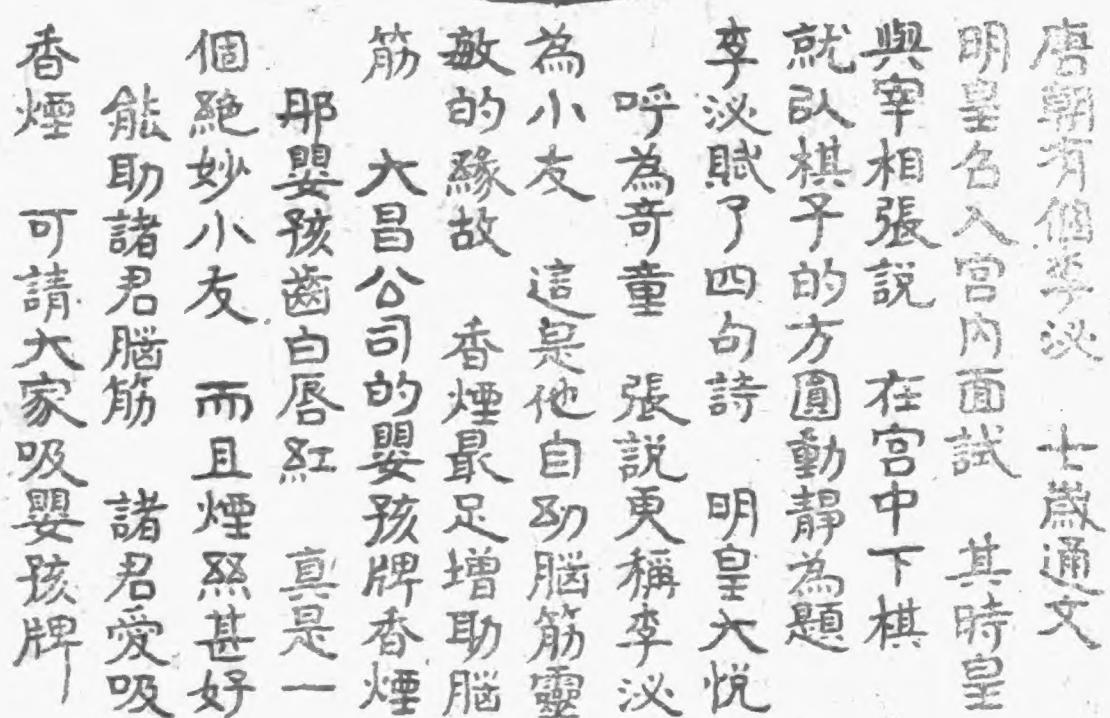 唐朝有個李泌 七歲通文
明皇召入宮內面試 其時皇
與宰相張說 在宮中下棋
就以棋子的方圓動靜為題
李泌賦了四句詩 明皇大悅
呼為奇童 張說更稱李泌
為小友 這是他自幼腦筋靈
敏的緣故 香煙最足增助腦
筋 大昌公司的嬰孩牌香煙
那嬰孩齒白唇紅 真是一
個絕妙小友 而且煙絲甚好
能助諸君腦筋 諸君愛吸
香煙 可請大家吸嬰孩牌